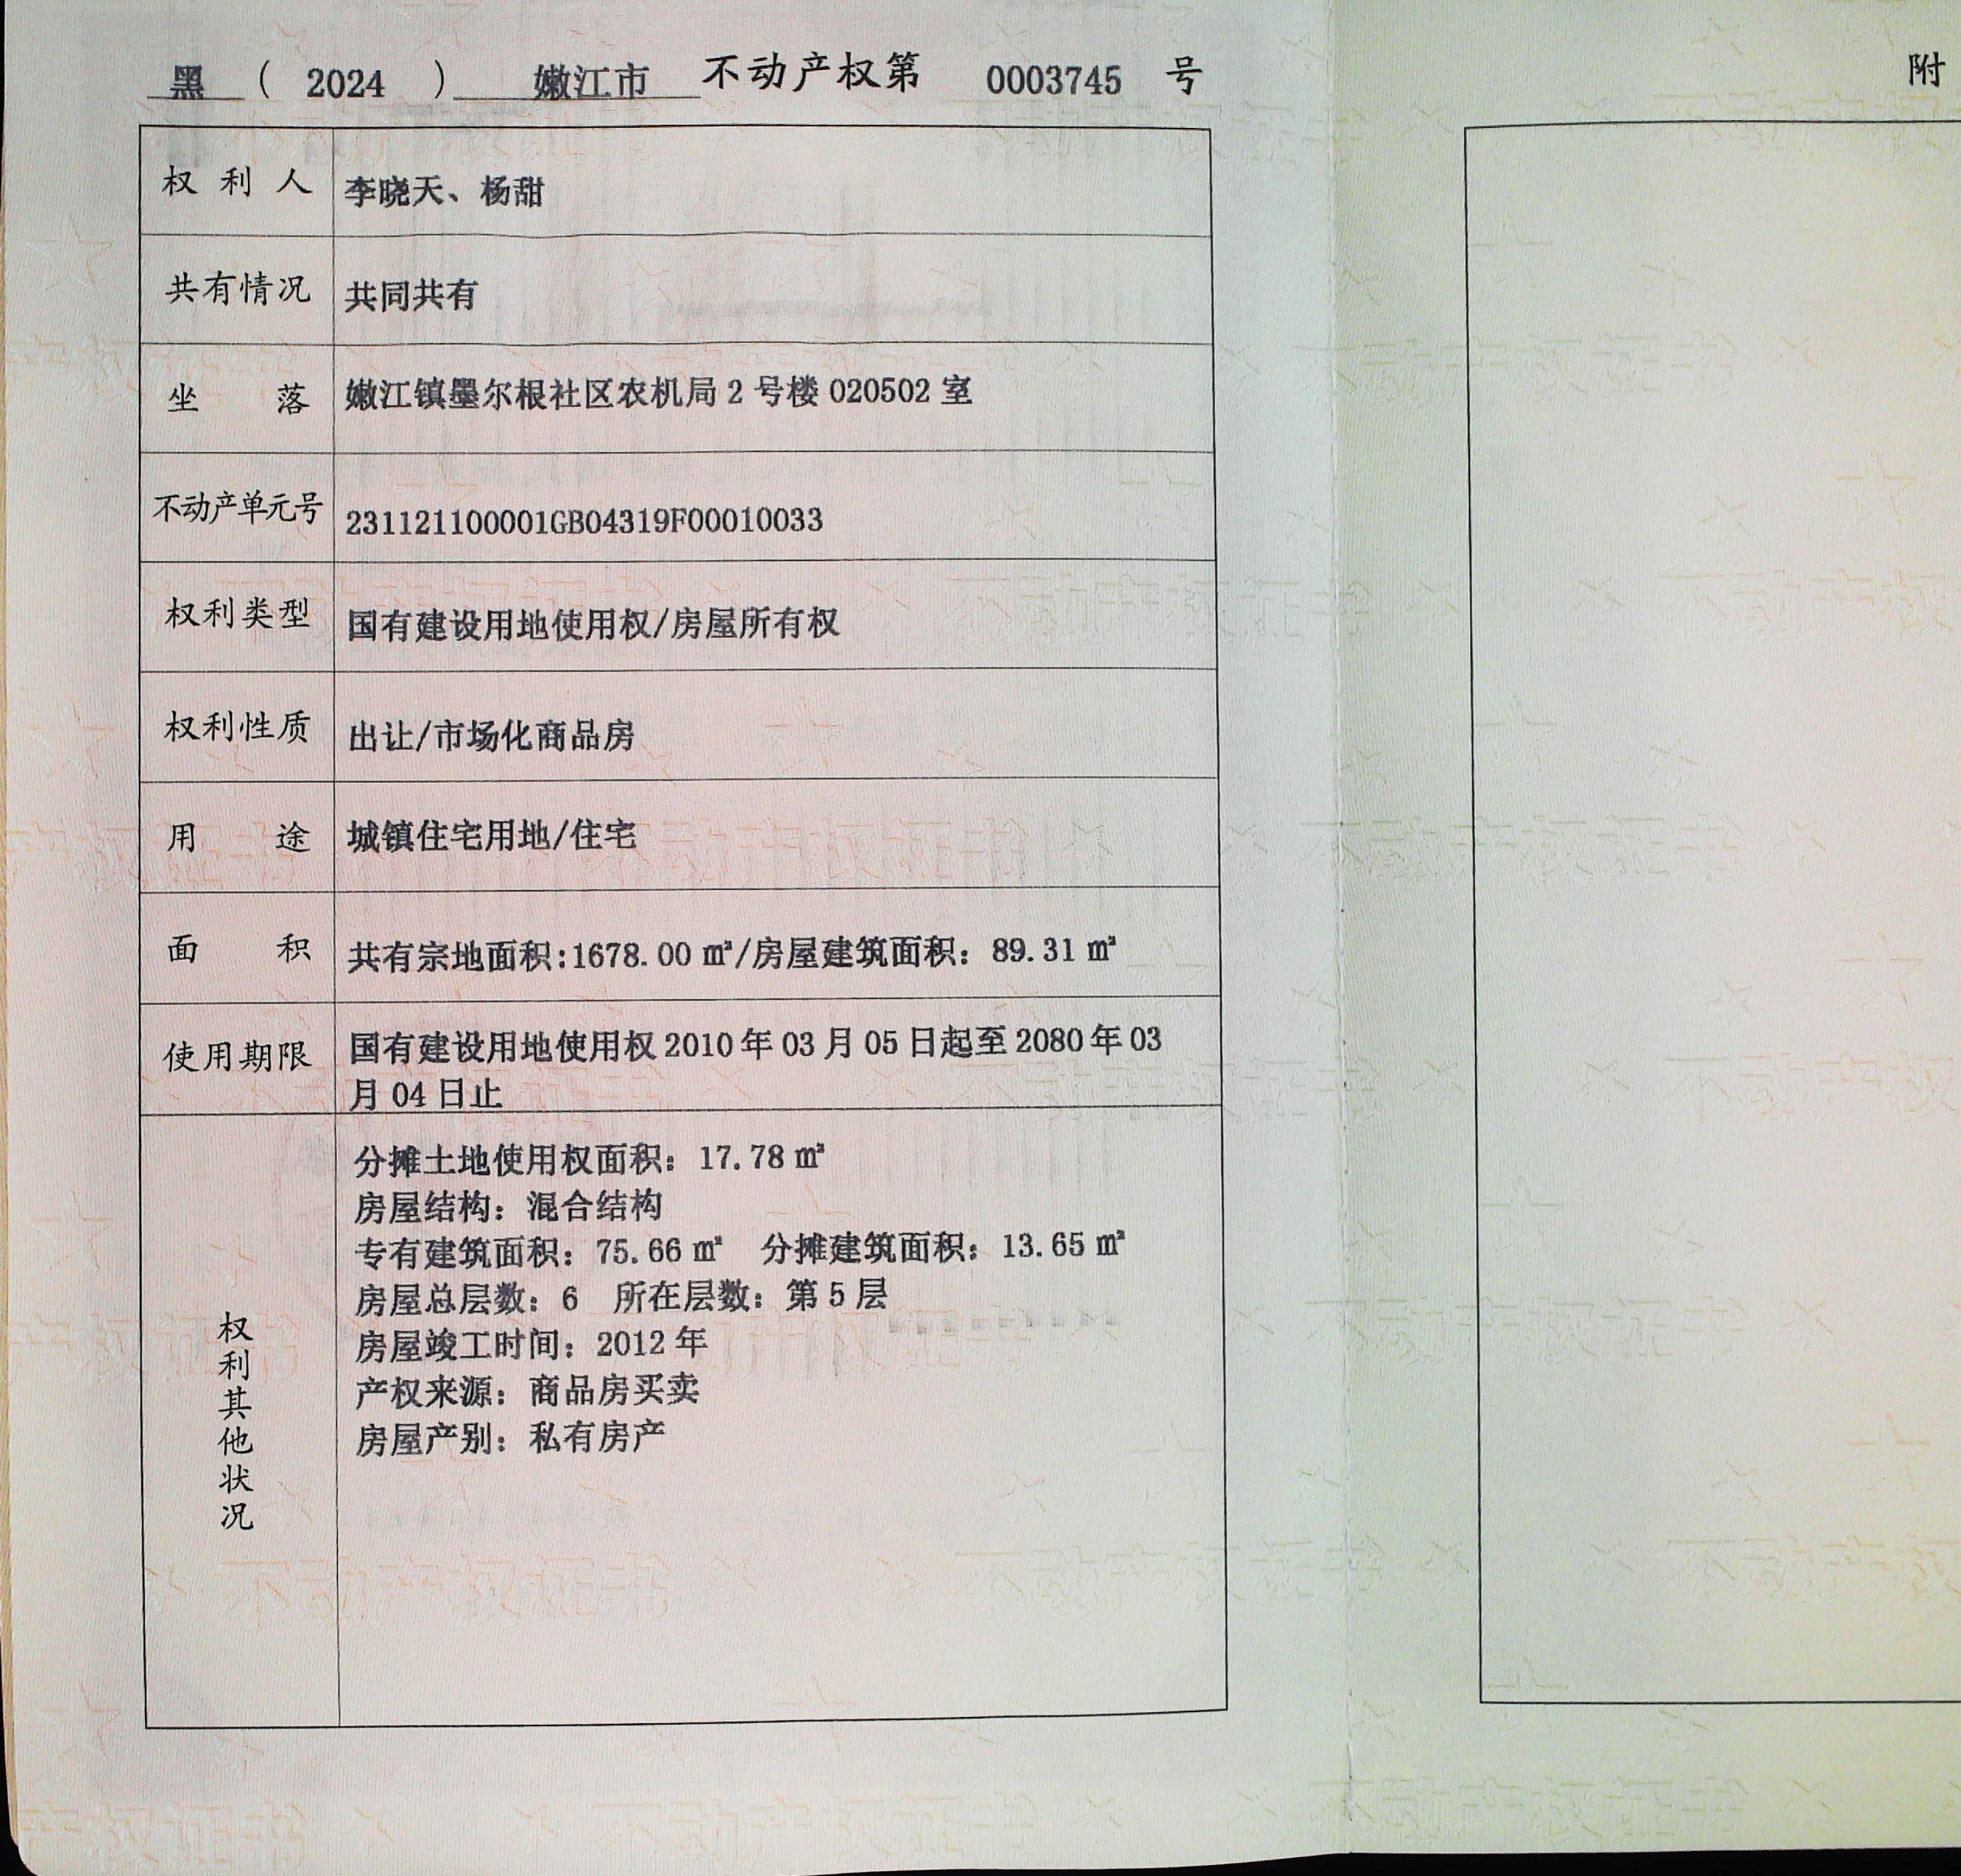 黑 ( 2024 ) 嫩江市 不动产权第 0003745 号
附
权利人 李晓天、杨甜
共有情况 共同共有
坐落 嫩江镇墨尔根社区农机局 2 号楼 020502 室
不动产单元号 231121100001GB04319F00010033
权利类型 国有建设用地使用权/房屋所有权
权利性质 出让/市场化商品房
用途 城镇住宅用地/住宅
面积 共有宗地面积:1678.00 ㎡/房屋建筑面积: 89.31 ㎡
使用期限 国有建设用地使用权 2010 年 03 月 05 日起至 2080 年 03
月 04 日止
权利其他状况
分摊土地使用权面积: 17.78 ㎡
房屋结构: 混合结构
专有建筑面积: 75.66 ㎡ 分摊建筑面积: 13.65 ㎡
房屋总层数: 6 所在层数: 第 5 层
房屋竣工时间: 2012 年
产权来源: 商品房买卖
房屋产别: 私有房产